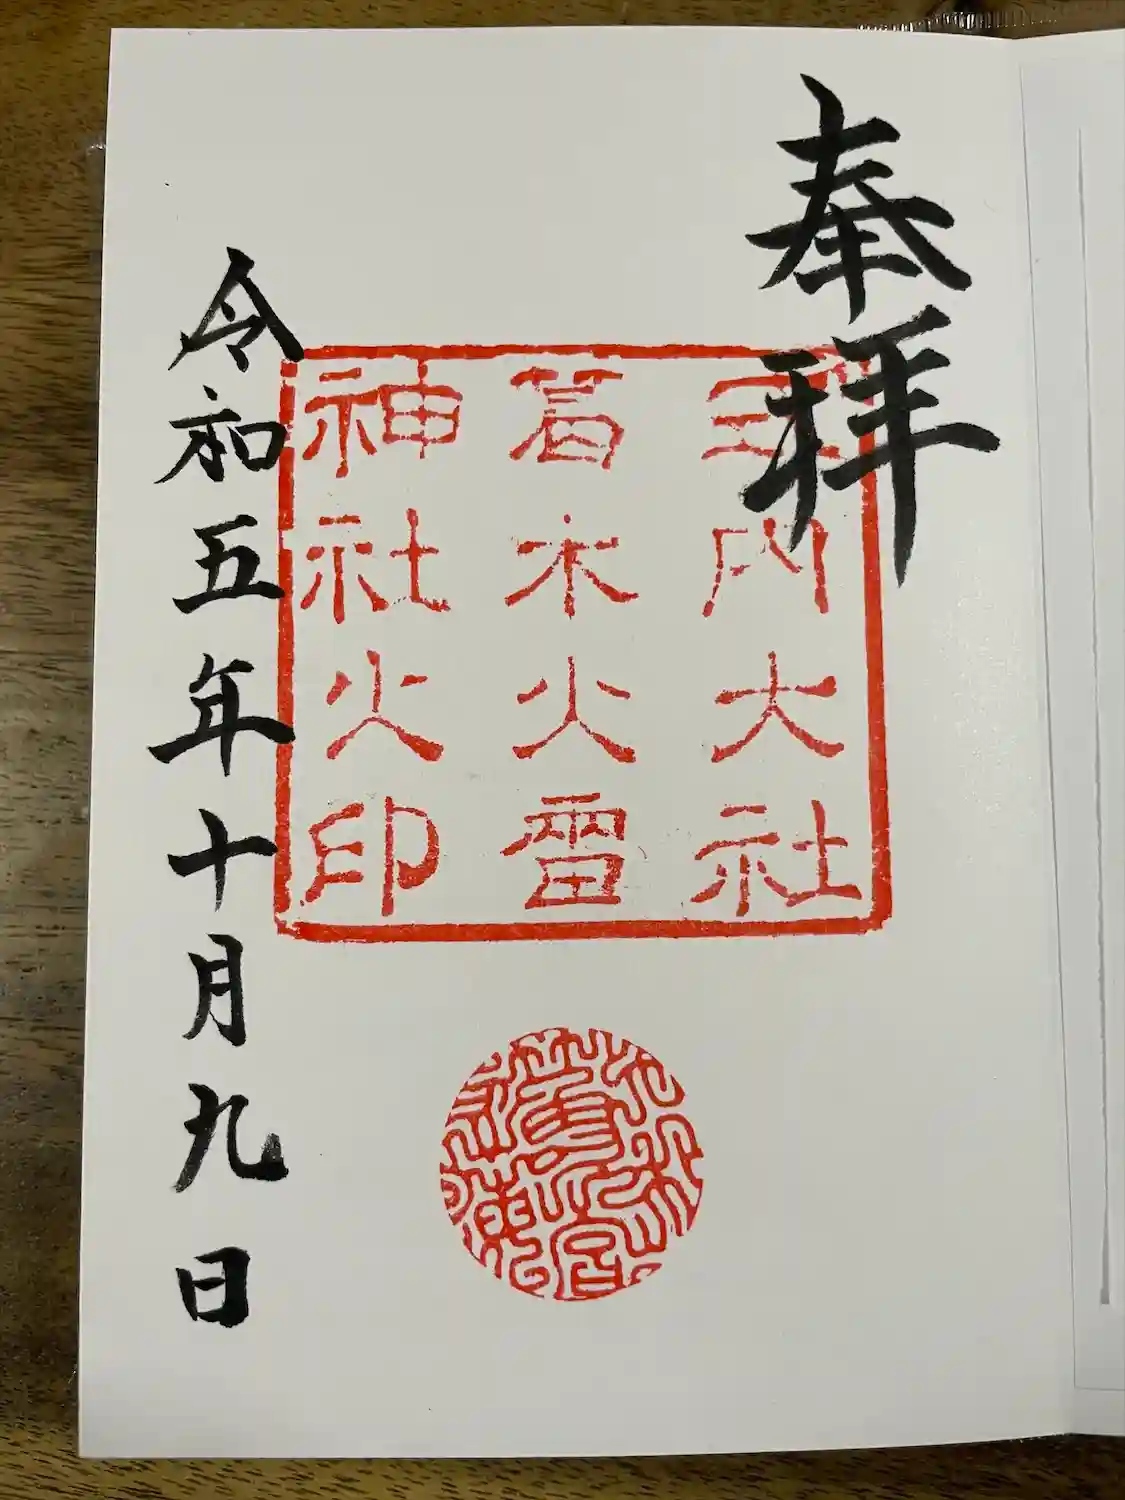 奉拝
式内大社
葛木火雷
神社之印
令和五年十月九日